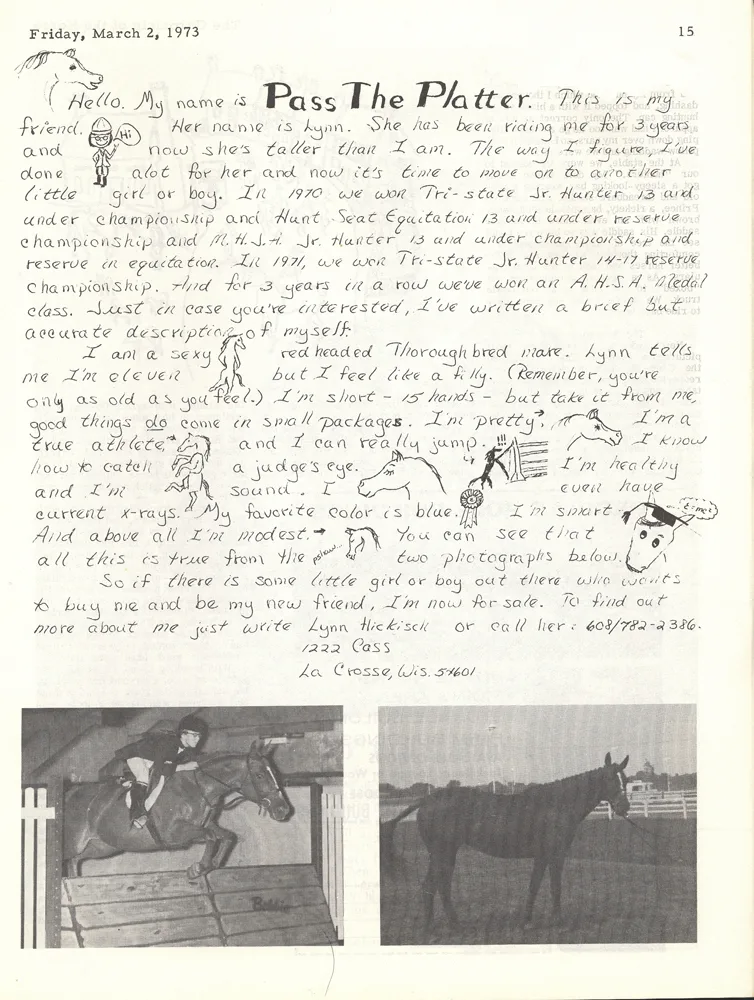 Friday, March 2, 1973 15
Hello. My name is Pass The Platter. This is my
friend. Hi Her name is Lynn. She has been riding me for 3 years
and now she's taller than I am. The way I figure, I've
done alot for her and now it's time to move on to another
little girl or boy. In 1970 we won Tri-state Jr. Hunter 13 and
under championship and Hunt Seat Equitation 13 and under reserve
championship and M.H.J.A. Jr. Hunter 13 and under championship and
reserve in equitation. In 1971, we won Tri-state Jr. Hunter 14-17 reserve
championship. And for 3 years in a row we've won an A.H.S.A. Medal
class. Just in case you're interested, I've written a brief but
accurate description of myself:
I am a sexy red headed Thoroughbred mare. Lynn tells
me I'm eleven but I feel like a filly. (Remember, you're
only as old as you feel.) I'm short - 15 hands - but take it from me,
good things do come in small packages. I'm pretty, I'm a
true athlete, and I can really jump. I know
how to catch a judge's eye. I'm healthy
and I'm sound. I even have
current x-rays. My favorite color is blue. I'm smart
And above all I'm modest. You can see that
all this is true from the two photographs below.
So if there is some little girl or boy out there who wants
to buy me and be my new friend, I'm now for sale. To find out
more about me just write Lynn Hickisch or call her: 608/782-2386.
1222 Cass
La Crosse, Wis. 54601